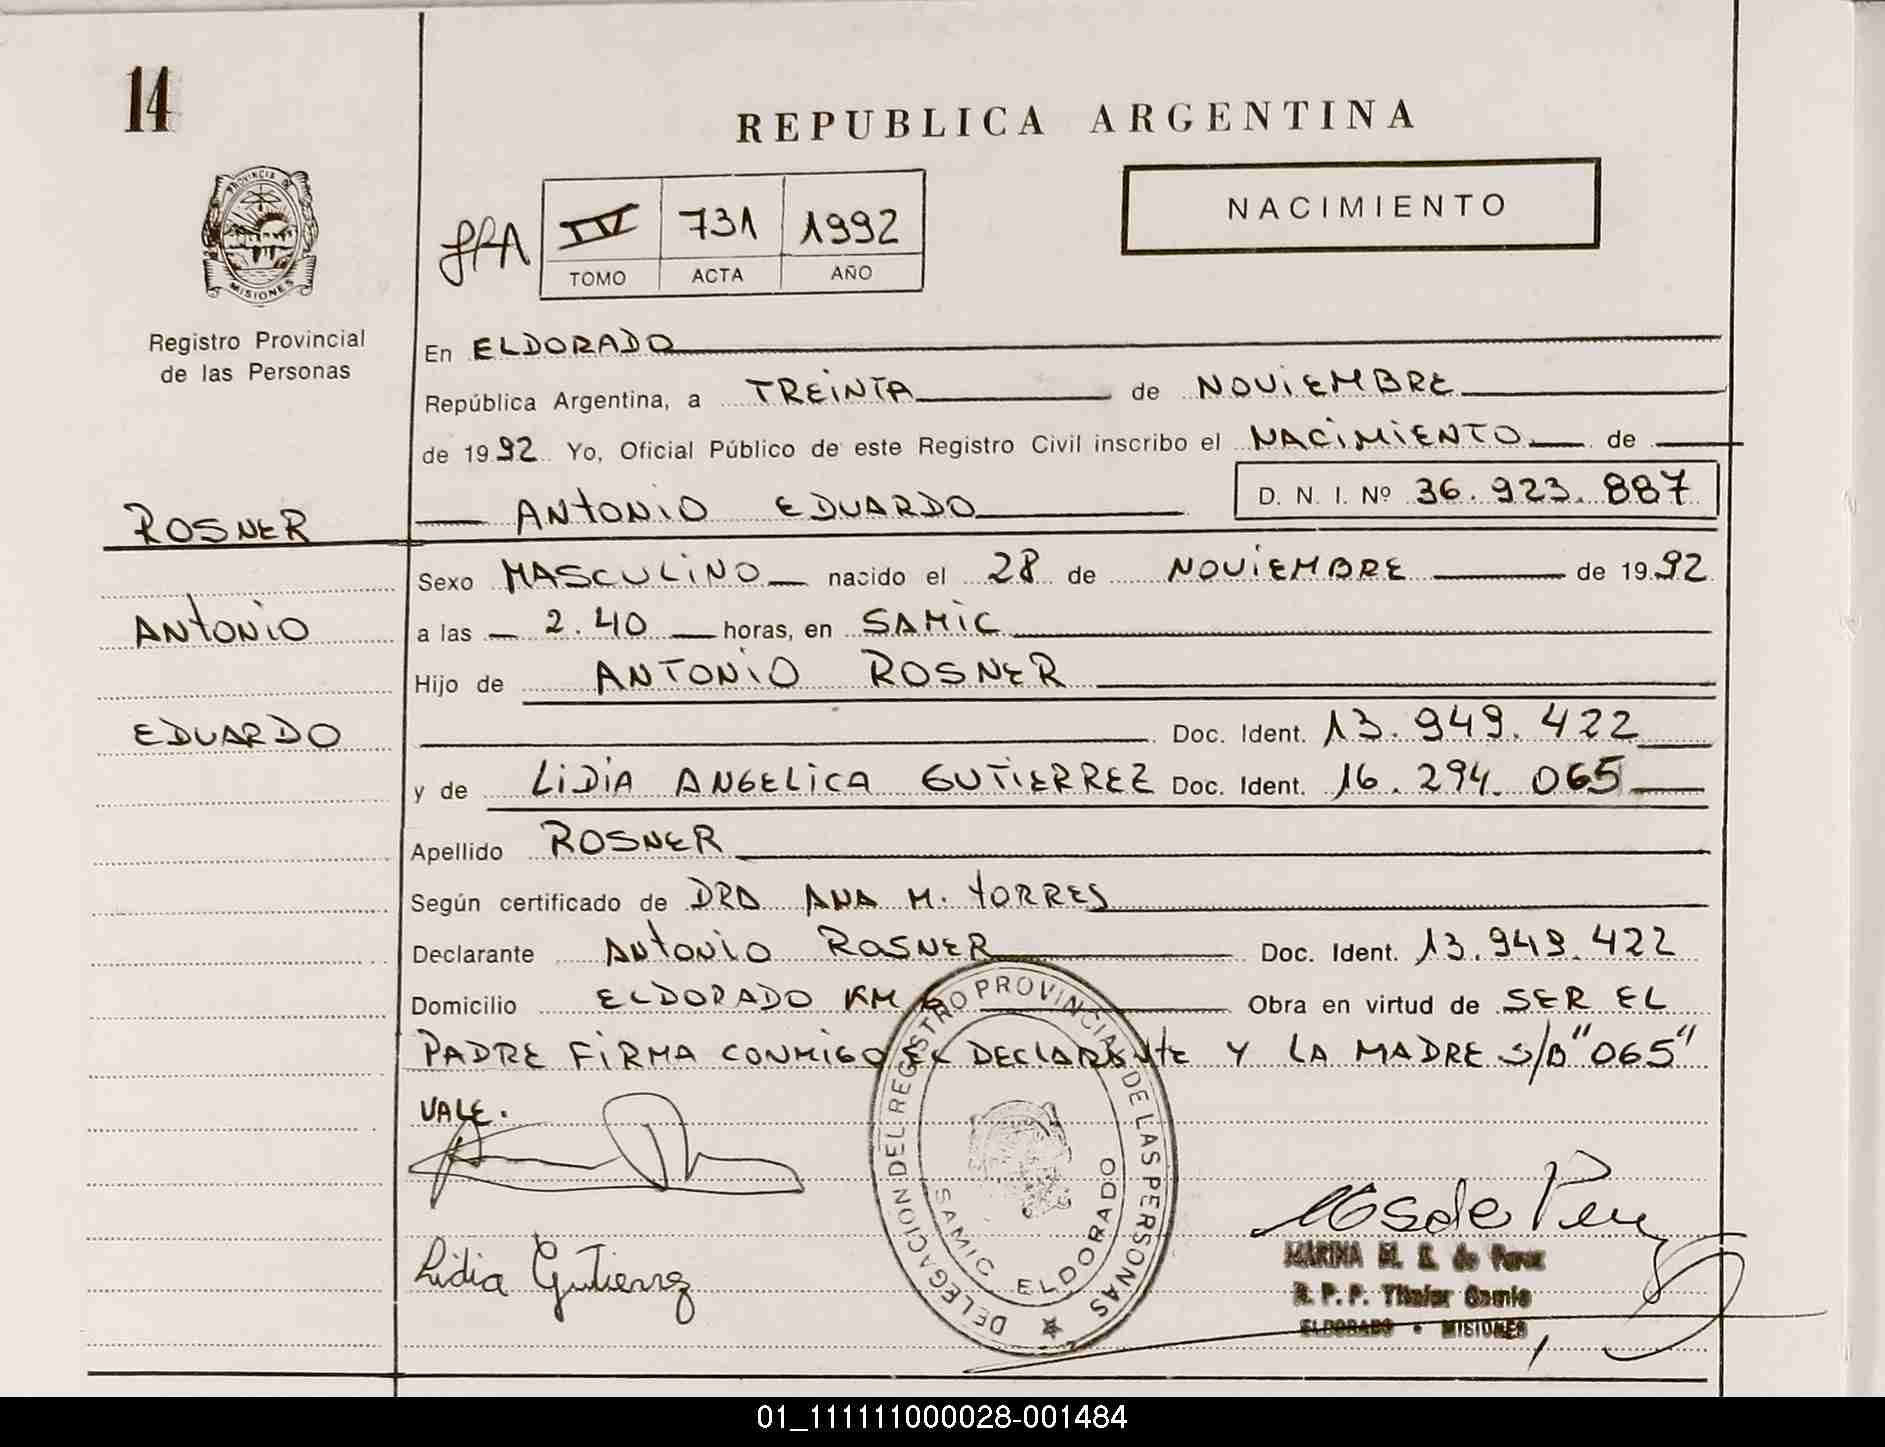 14
REPUBLICA ARGENTINA
PROVINCIA DE MISIONES
NACIMIENTO
IV 731 1992
TOMO ACTA AÑO
Registro Provincial
de las Personas
En ELDORADO
República Argentina, a TREINTA de NOVIEMBRE
de 1992 Yo, Oficial Público de este Registro Civil inscribo el NACIMIENTO de
ANTONIO EDUARDO D. N. I. Nº 36.923.887
ROSNER
ANTONIO
EDUARDO
Sexo MASCULINO nacido el 28 de NOVIEMBRE de 1992
a las 2.40 horas, en SAMIC
Hijo de ANTONIO ROSNER
Doc. Ident. 13.949.422
y de LIDIA ANGELICA GUTIERREZ Doc. Ident. 16.294.065
Apellido ROSNER
Según certificado de DRA ANA M. TORRES
Declarante ANTONIO ROSNER Doc. Ident. 13.949.422
Domicilio ELDORADO KM Obra en virtud de SER EL
PADRE FIRMA CONMIGO EL DECLARANTE Y LA MADRE S/B "065"
VALE.
Lidia Gutierrez
DELEGACION DEL REGISTRO PROVINCIAL DE LAS PERSONAS
SAMIC ELDORADO
MARINA M. de Perez
R.P.P. Titular Samic
ELDORADO - MISIONES
01_111111000028-001484